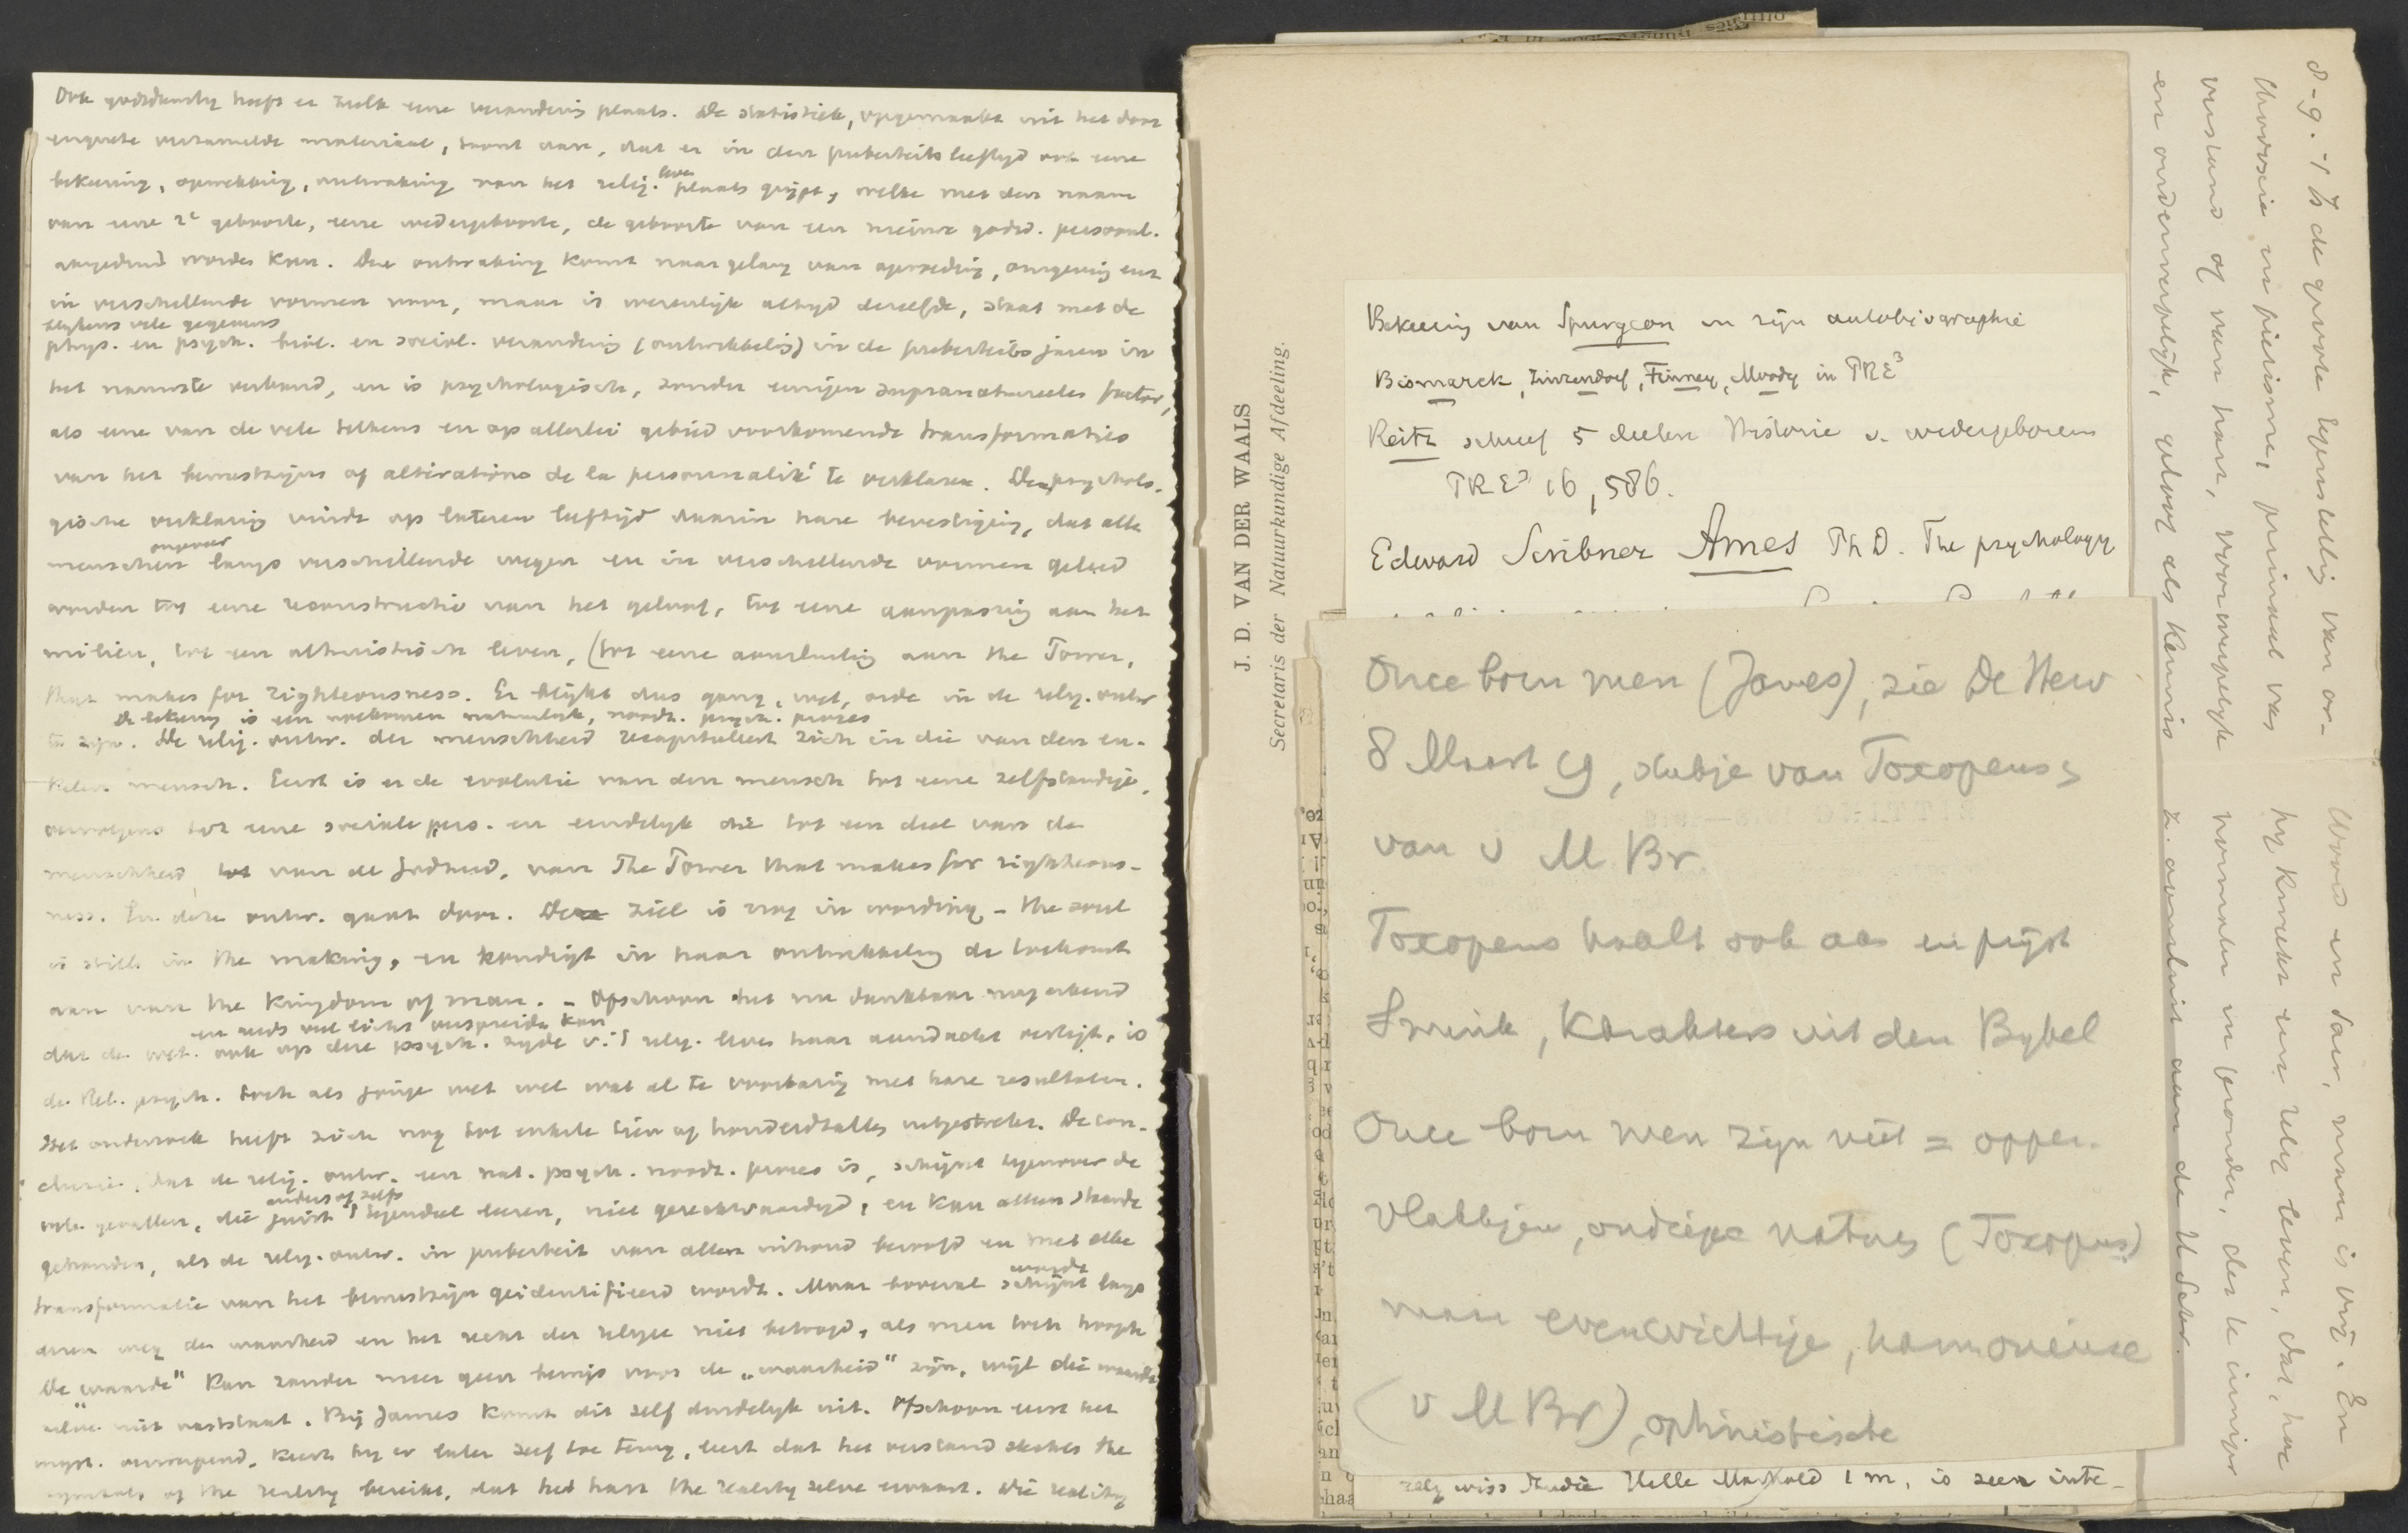 Ook godsdienstig heeft er zulk eene verandering plaats. De statistiek, opgemaakt uit het door
enquete verzamelde materiaal, toont aan, dat er in den puberteitsleeftijd ook eene
bekeering, opwekking, ontwaking van het relig. leven plaats grijpt, welke met den naam
van eene 2e geboorte, eene wedergeboorte, de geboorte van een nieuwe godsd. persoonl.
aangeduid worden kan. Die ontwaking komt naar gelang van opvoeding, omgeving enz
in verschillende vormen voor, maar is wezenlijk altijd dezelfde, staat met de
blijkens vele gegevens
phys. en psych. biol. en social. verandering (ontwikkeling) in de puberteitsjaren in
het nauwste verband, en is psychologisch, zonder eenigen supranatureelen factor,
als eene van de vele telkens en op allerlei gebied voorkomende transformaties
van het bewustzijn of altérations de la personnalité te verklaren. Deze psycholo-
gische verklaring vindt op lateren leeftijd daarin hare bevestiging, dat alle
menschen ongeveer langs verschillende wegen en in verschillende vormen geleid
worden tot eene reconstructie van het geloof, tot eene aanpassing aan het
milieu, tot een altruistisch leven, (tot eene aansluiting aan the Power,
that makes for righteousness. Er blijkt dus gang, wet, orde in de relig. ontw
De bekeering is een volkomen natuurlijk, noodz. psych. proces
te zijn. De relig. ontw. der menschheid recapituleert zich in die van den en-
kelen mensch. Eerst is er de evolutie van den mensch tot eene zelfstandige,
vervolgens tot eene sociale pers. en eindelijk die tot een deel van de
menschheid, van de Godheid, van The Power that makes for righteous-
ness. En deze ontw. gaat door. De ziel is nog in wording - the soul
is still in the making, en kondigt in haar ontwikkeling de toekomst
aan van the Kingdom of man. - Ofschoon het nu dankbaar mag erkend
en reeds veel lichts verspreiden kan
dat de wet. ook op deze psych. zijde v. 't relig. leven haar aandacht vestigt, is
de Rel. psych. toch als jonge wet wel wat al te voorbarig met hare resultaten.
Het onderzoek heeft zich nog tot enkele tien of honderdtallen uitgestrekt. De con-
clusie, dat de relig. ontw. een nat. psych. noodz. proces is, schijnt tegenover de
vele gevallen, die juist anders of zelfs 't tegendeel leeren, niet gerechtvaardigd, en kan alleen stand
gehouden, als de relig. ontw. in puberteit van allen inhoud beroofd en met elke
transformatie van het bewustzijn geidentificeerd wordt. Maar bovenal schijnt langs
dezen weg de waarheid en het recht der religie niet betoogd, als men toch hoopte
De „waarde" kan zonder meer geen bewijs voor de „waarheid" zijn, wijl die waarde
zelve niet vaststaat. Bij James komt dit zelf duidelijk uit. Ofschoon eerst het
myst. aanroepend, keert hij er later zelf toe terug, leert dat het verstand slechts the
symbols of the reality bereikt, dat het hart the reality zelve ervaart. Die reality
J. D. VAN DER WAALS
Secretaris der Natuurkundige Afdeeling.
Bekeering van Spurgeon in zijn autobiographie
Bismarck, Zinzendorf, Finney, Moody in PRE³
Reitz schreef 5 deelen Historie d. wedergeborenen
PRE³ 16, 586.
Edward Scribner Ames Ph D. The psychology
Once born men (James), zie De Heer
8 Maart 09, stukje van Toxopeus
van v M Br.
Toxopeus haalt ook aan en prijst
Karakters uit den Bybel
Once born men zijn niet = opper-
vlakkige, ondiepe naturen (Toxopeus)
maar evenwichtige, harmonieuse
(v M Br), optimistische
relig wiss Studie Helle Markold 1 m, is zeer inte-
8-9. -/ Is de groote tegenstelling van or-
thodoxie en pietisme, primaat van
verstand of van hart, voorwerpelyk
en onderwerpelyk, geloof als kennis
Woord en Sacr, maar is vrij. En
hy kweekt een relig leven, dat, hoe
normaler en gezonder, des te inniger
z. aansluit aan de H Schr.